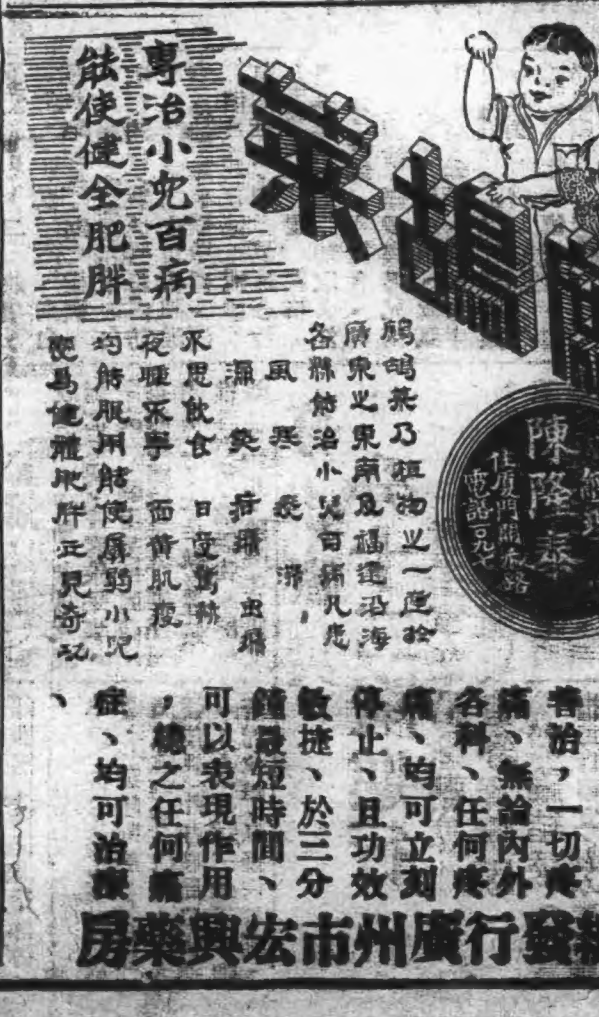 鷓鴣菜
專治小兒百病
能使健全肥胖
鷓鴣菜乃植物之一產於
廣東之東南及福建沿海
各縣能治小兒百病凡患
風寒
濕
疳積 虫積
不思飲食 日夜驚
夜睡不寧 面黃肌瘦
均能服用能使孱弱小兒
變爲健體肥胖正見奇功
陳隆泰
住厦門開
電話
普治,一切疼
痛、無論內外
各科、任何疼
痛、均可立刻
停止、且功效
敏捷、於三分
鐘最短時間、
可以表現作用
,總之任何痛
症、均可治療
、
發行廣州市宏興藥房